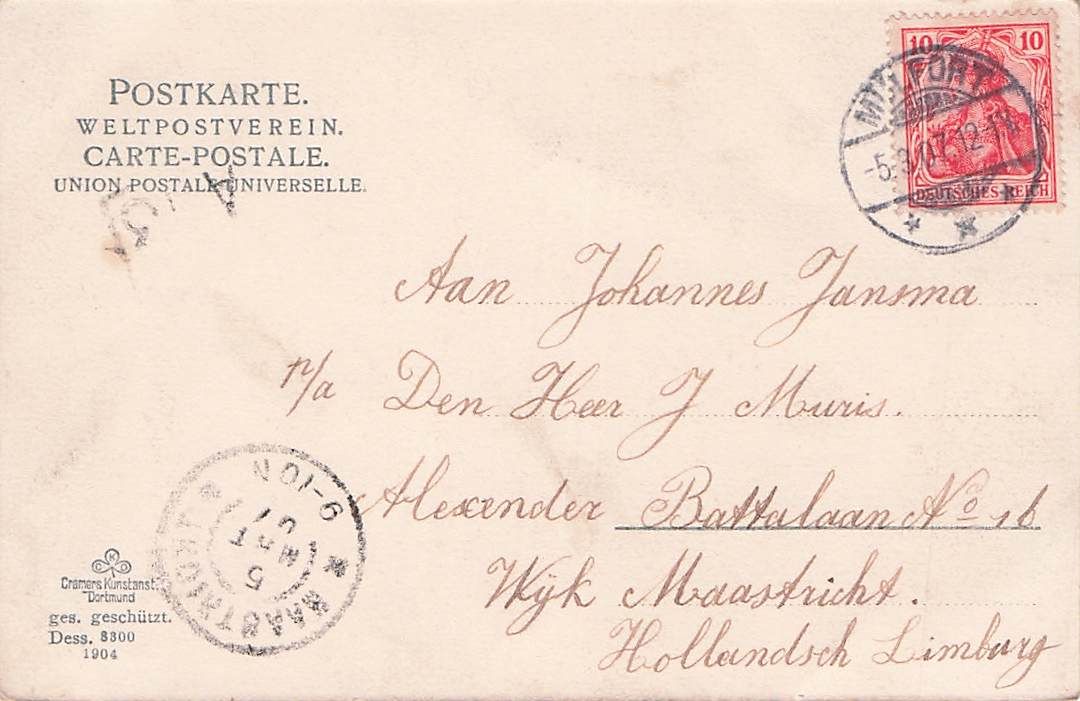 POSTKARTE.
WELTPOSTVEREIN.
CARTE-POSTALE.
UNION POSTALE UNIVERSELLE.
10 10
DEUTSCHES REICH
-5.3.07.12-1N.
A
Aan Johannes Jansma
p/a Den Heer J Muris.
Alexender Battalaan No 16
Wijk Maastricht.
Hollandsch Limburg
MAASTRICHT
5 MRT 07
9-10N
Cramers Kunstanst.
Dortmund
ges. geschützt.
Dess. 8300
1904